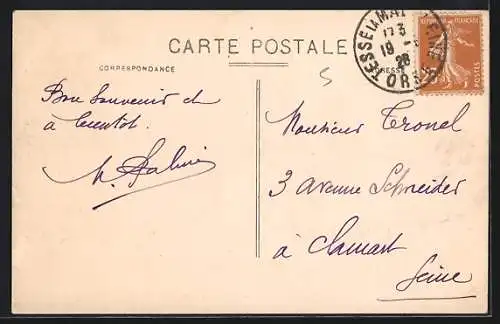 CARTE POSTALE
CORRESPONDANCE
TESSÉ la MA
17 3
19
26
ORNE
RÉPUBLIQUE FRANÇAISE
POSTES
5
Bon Souvenir et
à bientôt.
Monsieur Tronel
3 Avenue Schneider
à Clamart
Seine